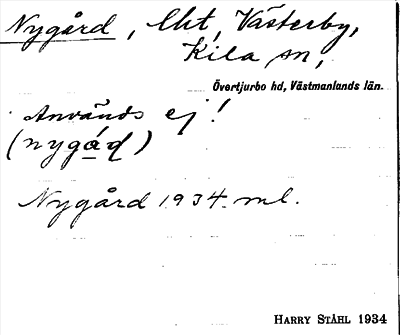 Nygård, lht, Västerby,
Kila sn,
Övertjurbo hd, Västmanlands län.
Används ej!
(nygáɖ)
Nygård 1934. ml.
HARRY STÅHL 1934